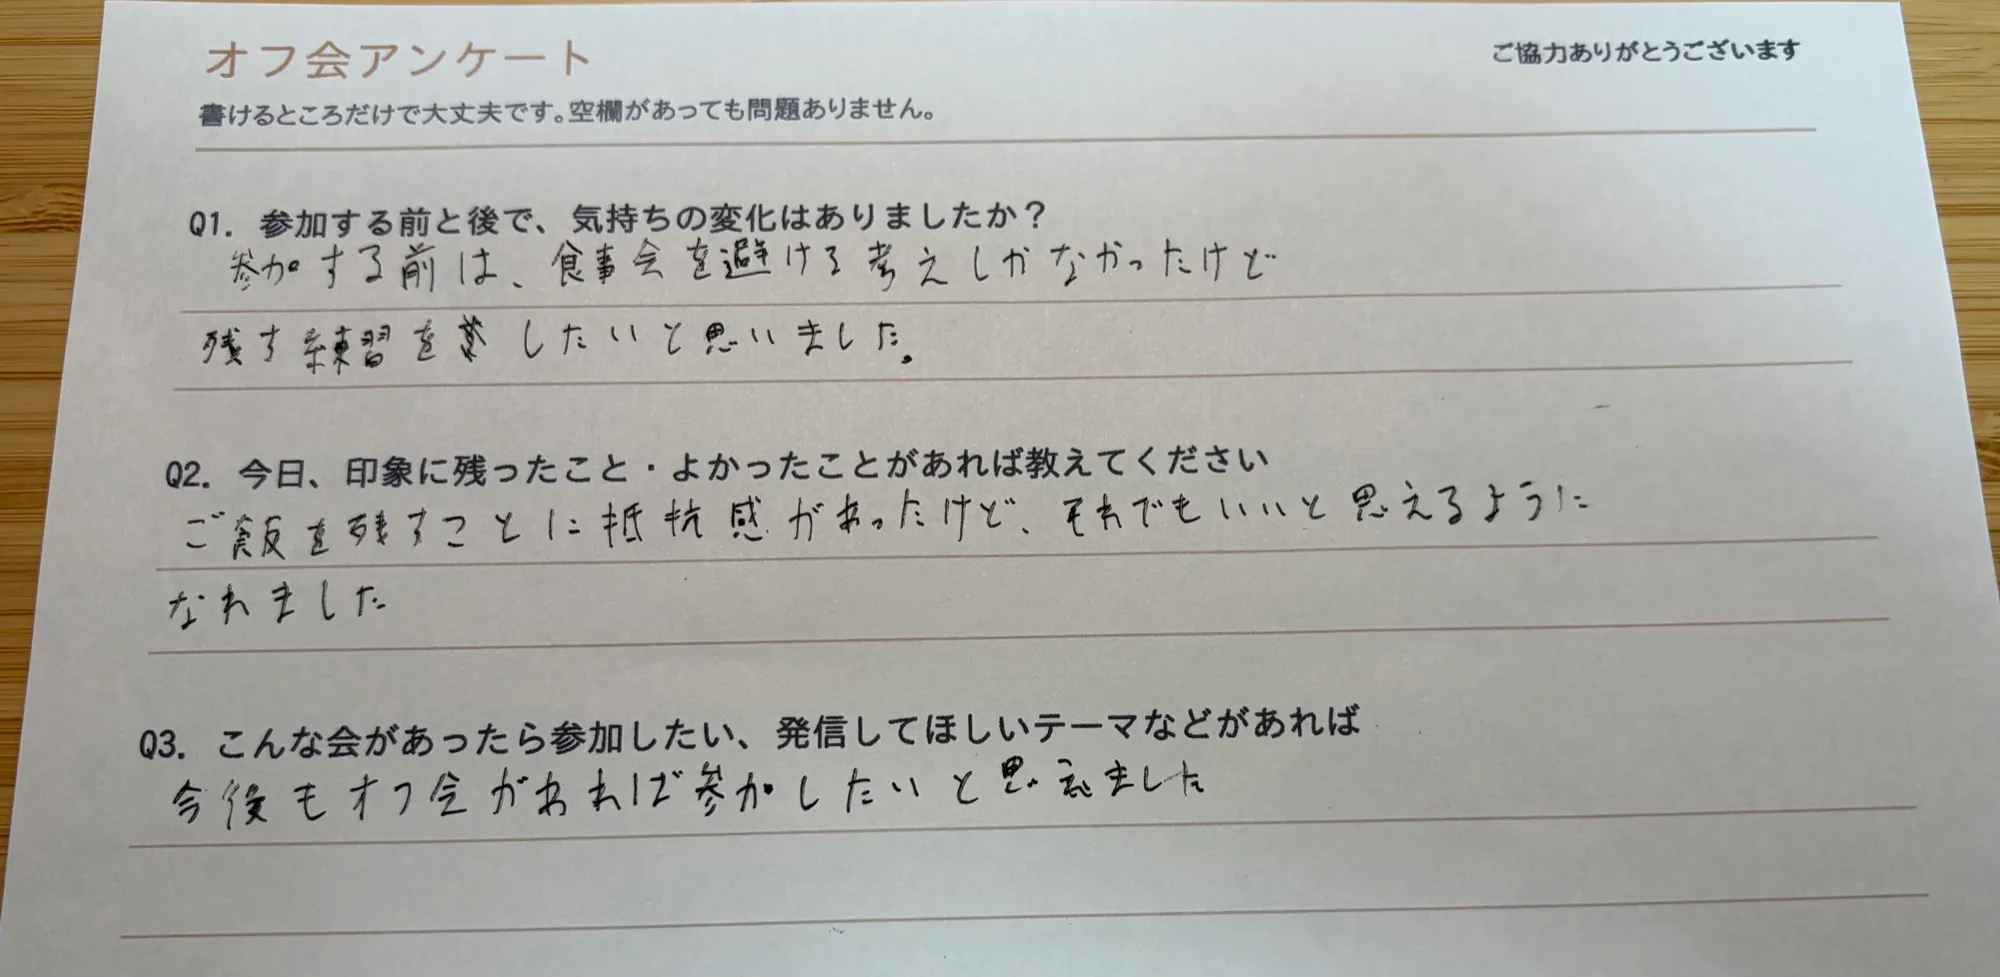 オフ会アンケート
ご協力ありがとうございます
書けるところだけで大丈夫です。空欄があっても問題ありません。
Q1. 参加する前と後で、気持ちの変化はありましたか？
参加する前は、食事会を避ける考えしかなかったけど
残す練習を したいと思いました。
Q2. 今日、印象に残ったこと・よかったことがあれば教えてください
ご飯を残すことに抵抗感があったけど、それでもいいと思えるように
なれました
Q3. こんな会があったら参加したい、発信してほしいテーマなどがあれば
今後もオフ会があれば参加したいと思えました